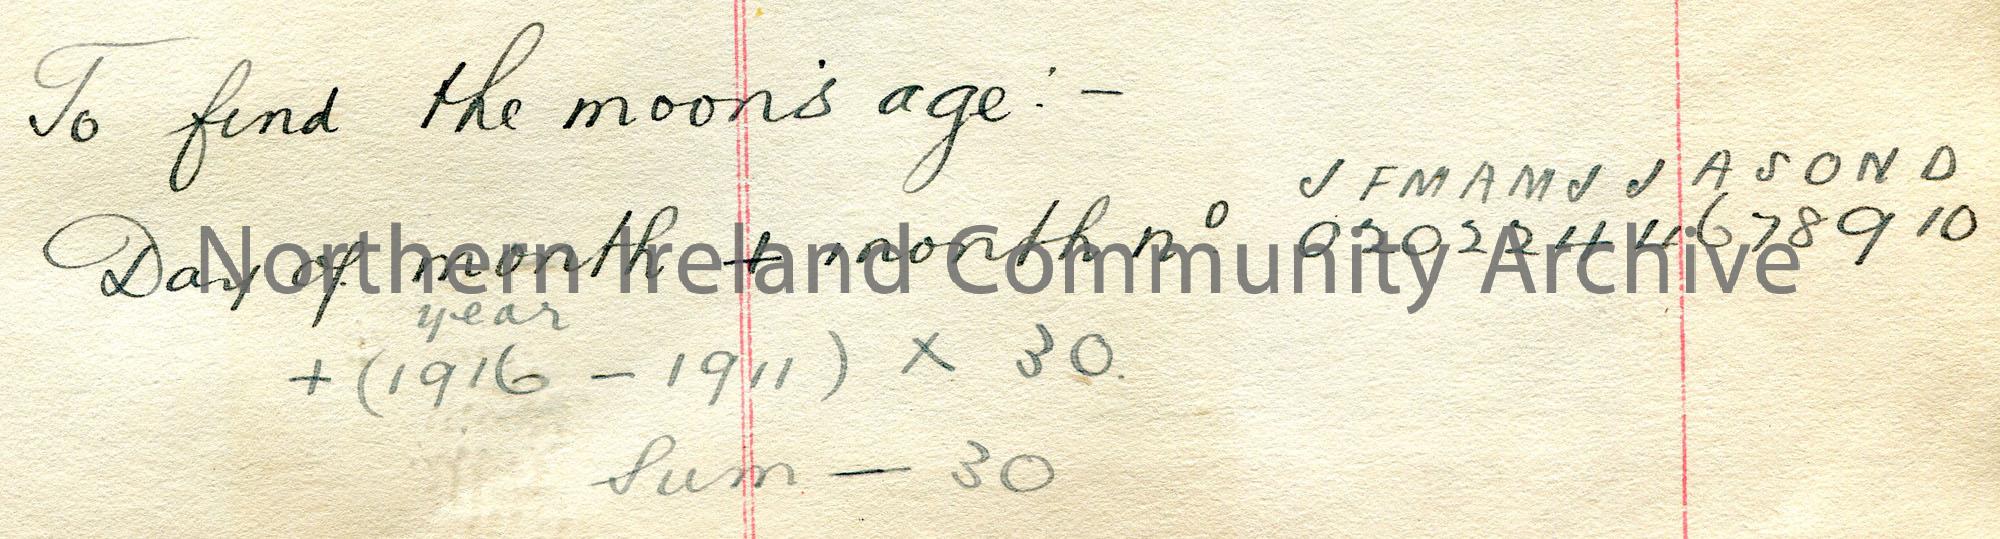 To find the moon's age:-
J F M A M J J A S O N D
Day of month + month nº 0 2 0 2 2 4 4 6 7 8 9 10
Northern Ireland Community Archive
year
+ (1916 - 1911) × 30.
Sum - 30